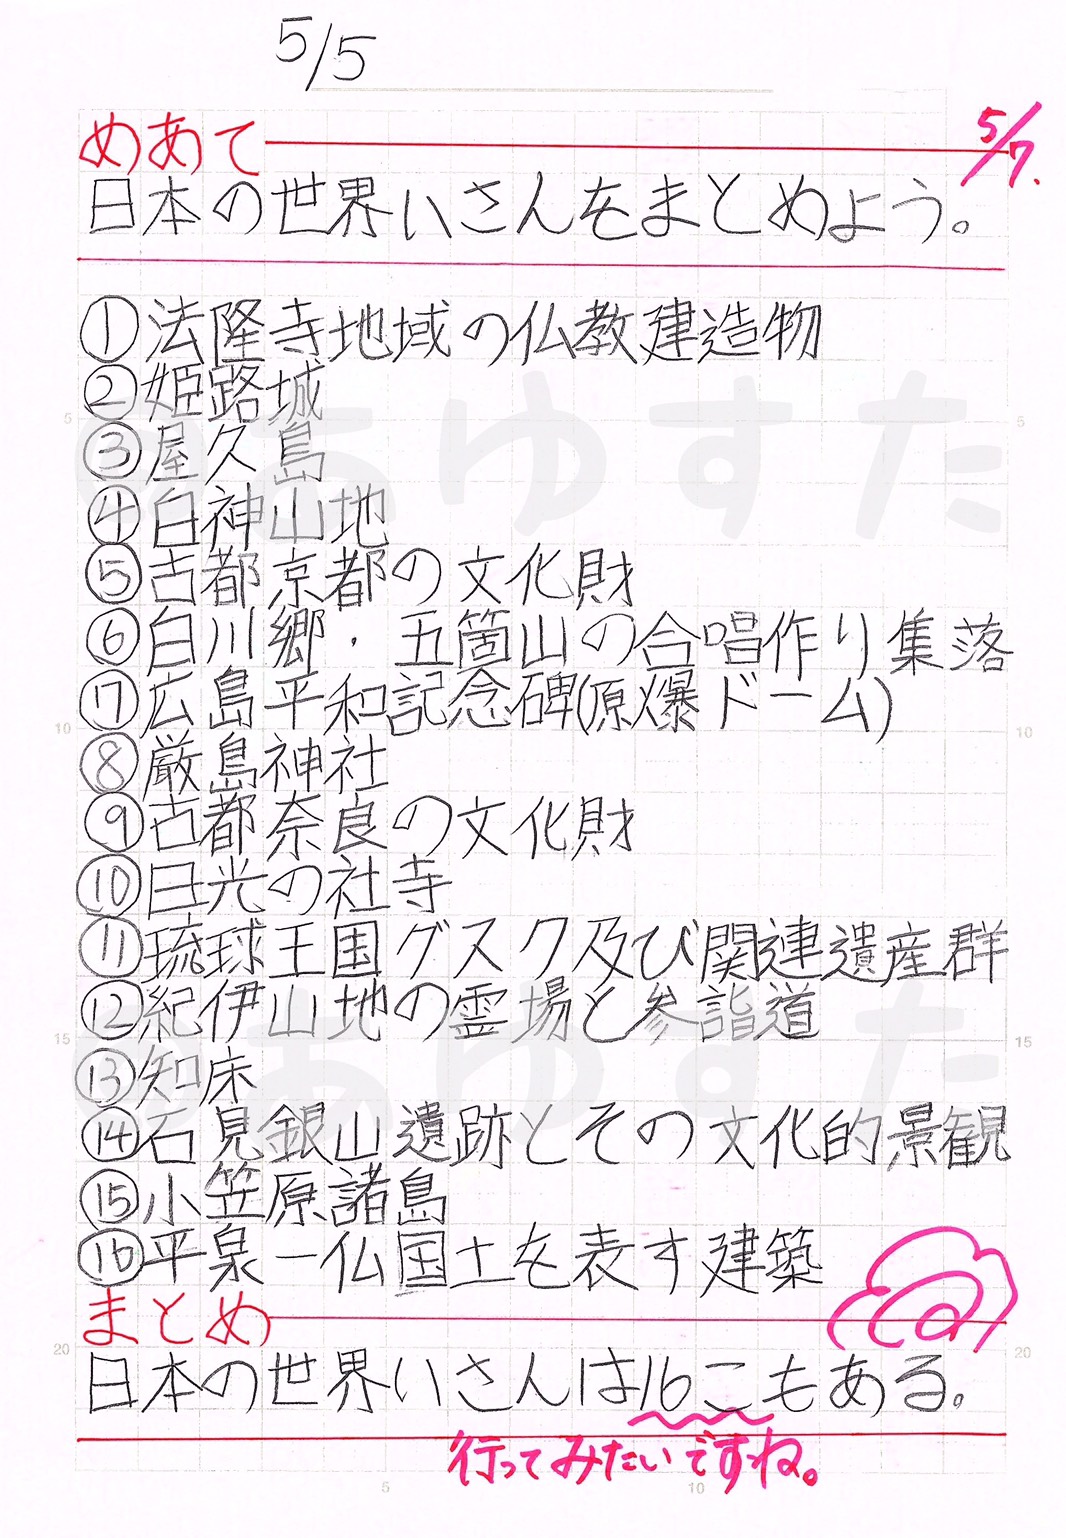 5/5
めあて
5/7.
日本の世界いさんをまとめよう。
①法隆寺地域の仏教建造物
②姫路城
③屋久島
④白神山地
⑤古都京都の文化財
⑥白川郷・五箇山の合唱作り集落
⑦広島平和記念碑(原爆ドーム)
⑧厳島神社
⑨古都奈良の文化財
⑩日光の社寺
⑪琉球王国グスク及び関連遺産群
⑫紀伊山地の霊場と参詣道
⑬知床
⑭石見銀山遺跡とその文化的景観
⑮小笠原諸島
⑯平泉ー仏国土を表す建築
まとめ
日本の世界いさんは16こもある。
行ってみたいですね。
あゆすた
あゆすた
5
10
15
20
5
10
15
20
5
10